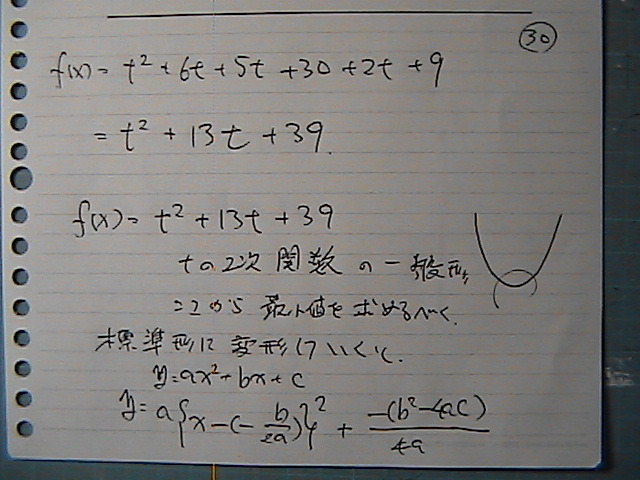 30
f(x) = t² + 6t + 5t + 30 + 2t + 9
= t² + 13t + 39.
f(x) = t² + 13t + 39
tの2次関数の一般形
ここから最小値を求めるべく.
標準形に変形していくと.
y = ax² + bx + c
y = a{x - (-b/2a)}² + -(b² - 4ac)/4a